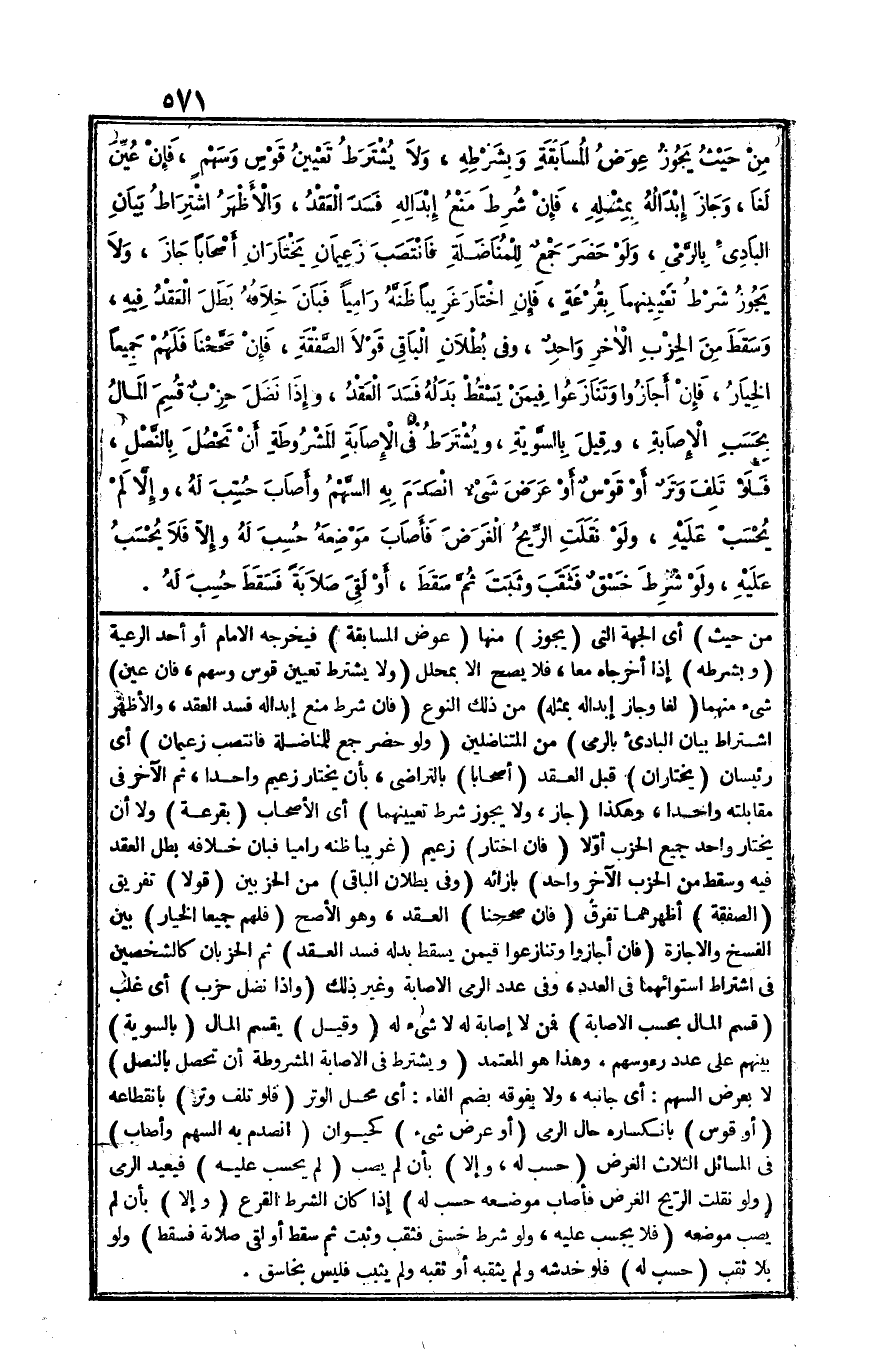 ٥٧١
مِنْ حَيْثُ يَجُوزُ عِوَضُ الْمُسَابَقَةِ وَبِشَرْطِهِ ، وَلاَ يُشْتَرَطُ تَعْيِينُ قَوْسٍ وَسَهْمٍ ، فَإِنْ عُيِّنَ
لَغَا ، وَجَازَ إِبْدَالُهُ بِمِثْلِهِ ، فَإِنْ شُرِطَ مَنْعُ إِبْدَالِهِ فَسَدَ الْعَقْدُ ، وَالْأَظْهَرُ اشْتِرَاطُ بَيَانِ
البَادِىءِ بِالرَّمْىِ ، وَلَوْ حَضَرَ جَمْعٌ لِلْمُنَاضَلَةِ فَانْتَصَبَ زَعِيمَانِ يَخْتَارَانِ أَصْحَابًا جَازَ ، وَلاَ
يَجُوزُ شَرْطُ تَعْيِينِهِمَا بِقُرْعَةٍ ، فَإِنِ اخْتَارَ غَرِيبًا ظَنَّهُ رَامِيًا فَبَانَ خِلاَفُهُ بَطَلَ الْعَقْدُ فِيهِ ،
وَسَقَطَ مِنَ الْحِزْبِ الْآخَرِ وَاحِدٌ ، وَفِى بُطْلاَنِ الْبَاقِى قَوْلاَ الصَّفْقَةِ ، فَإِنْ صَحَّحْنَا فَلَهُمْ جَمِيعًا
الْخِيَارُ ، فَإِنْ أَجَازُوا وَتَنَازَعُوا فِيمَنْ يَسْقُطُ بَدَلُهُ فَسَدَ الْعَقْدُ ، وَإِذَا نَضَلَ حِزْبٌ قُسِمَ الْمَالُ
بِحَسَبِ الْإِصَابَةِ ، وَقِيلَ بِالسَّوِيَّةِ ، وَيُشْتَرَطُ فِى الْإِصَابَةِ الْمَشْرُوطَةِ أَنْ تَحْصُلَ بِالنَّصْلِ ،
فَلَوْ تَلِفَ وَتَرٌ أَوْ قَوْسٌ أَوْ عَرَضَ شَىْءٌ انْصَدَمَ بِهِ السَّهْمُ وأَصَابَ حُسِبَ لَهُ ، وإِلَّا لَمْ
يُحْسَبْ عَلَيْهِ ، ولَوْ نَقَلَتِ الرِّيحُ الْغَرَضَ فَأَصَابَ مَوْضِعَهُ حُسِبَ لَهُ وإِلاَّ فَلاَ يُحْسَبُ
عَلَيْهِ ، ولَوْ شُرِطَ خَسْقٌ فَثَقَبَ وثَبَتَ ثُمَّ سَقَطَ ، أَوْ لَقِىَ صَلاَبَةً فَسَقَطَ حُسِبَ لَهُ .
من حيث ) أى الجهة التى ( يجوز ) منها ( عوض المسابقة ) فيخرجه الامام أو أحد الرعية
( وبشرطه ) إذا أخرجاه معا ، فلا يصح الا بمحلل ( ولا يشترط تعيين قوس وسهم ، فان عين )
شىء منهما ( لغا وجاز إبداله بمثله ) من ذلك النوع ( فان شرط منع إبداله فسد العقد ، والأظهر
اشتراط بيان البادىء بالرمى ) من المتناضلين ( ولو حضر جمع للمناضلة فانتصب زعيمان ) أى
رئيسان ( يختاران ) قبل العقد ( أصحابا ) بالتراضى ، بأن يختار زعيم واحدا ، ثم الآخر فى
مقابلته واحدا ، وهكذا ( جاز ، ولا يجوز شرط تعيينهما ) أى الأصحاب ( بقرعة ) ولا أن
يختار واحد جميع الحزب أوّلا ( فان اختار ) زعيم ( غريبا ظنه راميا فبان خلافه بطل العقد
فيه وسقط من الحزب الآخر واحد ) بازائه ( وفى بطلان الباقى ) من الحزبين ( قولا ) تفريق
( الصفقة ) أظهرهما تفرق ( فان صححنا ) العقد ، وهو الأصح ( فلهم جميعا الخيار ) بين
الفسخ والاجازة ( فان أجازوا وتنازعوا فيمن يسقط بدله فسد العقد ) ثم الحزبان كالشخصين
فى اشتراط استوائهما فى العدد ، وفى عدد الرمى الاصابة وغير ذلك ( واذا نضل حزب ) أى غلب
( قسم المال بحسب الاصابة ) فمن لا إصابة له لا شىء له ( وقيل ) يقسم المال ( بالسوية )
بينهم على عدد رءوسهم ، وهذا هو المعتمد ( ويشترط فى الاصابة المشروطة أن تحصل بالنصل )
لا بعرض السهم : أى جانبه ، ولا بفوقه بضم الفاء : أى محل الوتر ( فلو تلف وتر ) بانقطاعه
( أو قوس ) بانكساره حال الرمى ( أو عرض شىء ) كحيوان ( انصدم به السهم وأصاب )
فى المسائل الثلاث الغرض ( حسب له ، وإلا ) بأن لم يصب ( لم يحسب عليه ) فيعيد الرمى
( ولو نقلت الريح الغرض فأصاب موضعه حسب له ) إذا كان الشرط القرع ( وإلا ) بأن لم
يصب موضعه ( فلا يحسب عليه ، ولو شرط خسق فثقب وثبت ثم سقط أو لقى صلابة فسقط ) ولو
بلا ثقب ( حسب له ) فلو خدشه ولم يثقبه أو ثقبه ولم يثبت فليس بخاسق .